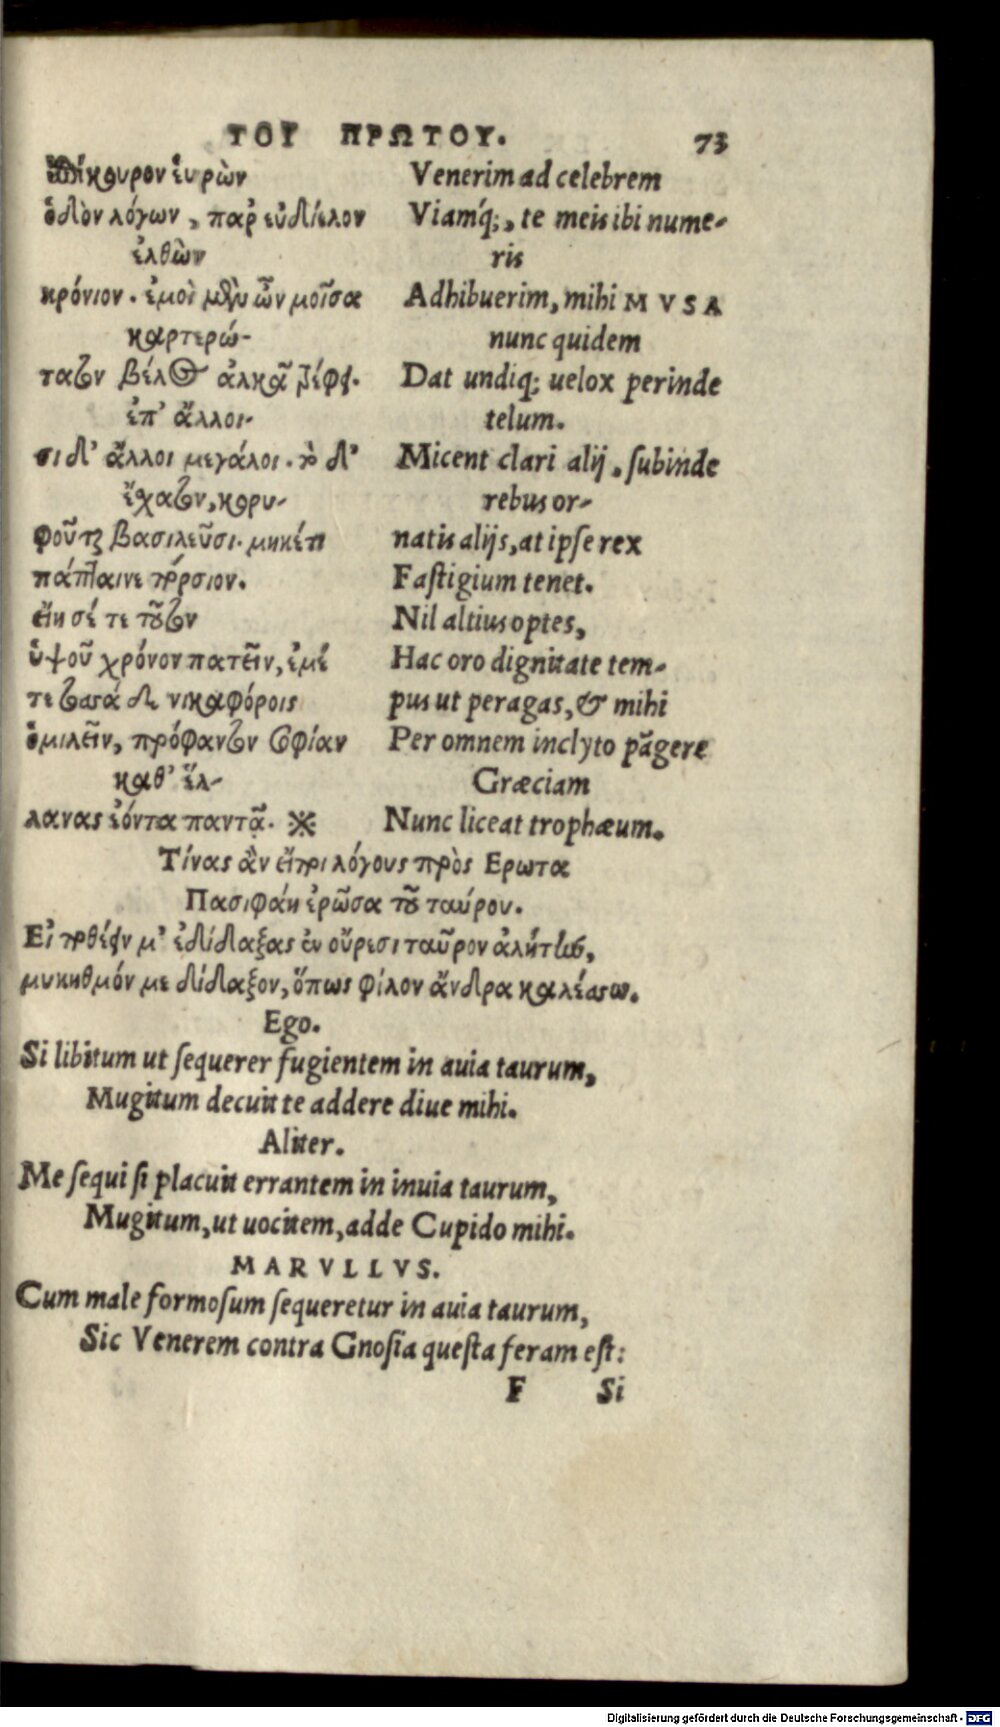 ΤΟΥ ΠΡΩΤΟΥ. 73
ἐπίκουρον εὑρὼν
ὁδὸν λόγων, παρ' εὐδείελον
ἐλθὼν
κρόνιον. ἐμοὶ μὲν ὦν μοῖσα
καρτερώ-
τατον βέλος ἀλκᾷ τρέφει.
ἐπ' ἄλλοι-
σι δ' ἄλλοι μεγάλοι. τὸ δ'
ἔχατον, κορυ-
φοῦται βασιλεῦσι. μηκέτι
πάπταινε πόρσιον.
εἴη σέ τε τοῦτον
ὑψοῦ χρόνον πατεῖν, ἐμέ
τε τοσσάδε νικαφόροις
ὁμιλεῖν, πρόφαντον σοφίαν
καθ' ἕλ-
λανας ἐόντα παντᾷ. ※
Venerim ad celebrem
Viamq́;, te meis ibi nume-
ris
Adhibuerim, mihi MVSA
nunc quidem
Dat undiq; uelox perinde
telum.
Micent clari alij, ſubinde
rebus or-
natis alijs, at ipſe rex
Faſtigium tenet.
Nil altius optes,
Hac oro dignitate tem-
pus ut peragas, & mihi
Per omnem inclyto p̃agere
Græciam
Nunc liceat trophæum.
Τίνας ἂν εἴποι λόγους πρὸς Ερωτα
Πασιφάη ἐρῶσα τοῦ ταύρου.
Εἰ ποθέειν μ' ἐδίδαξας ἐν οὔρεσι ταῦρον ἀλήτην,
μυκηθμόν με δίδαξον, ὅπως φίλον ἄνδρα καλέσσω.
Ego.
Si libitum ut ſequerer fugientem in auia taurum,
Mugitum decuit te addere diue mihi.
Aliter.
Me ſequi ſi placuit errantem in inuia taurum,
Mugitum, ut uocitem, adde Cupido mihi.
MARVLLVS.
Cum male formoſum ſequeretur in auia taurum,
Sic Venerem contra Gnoſia queſta feram eſt:
F Si
Digitalisierung gefördert durch die Deutsche Forschungsgemeinschaft - DFG